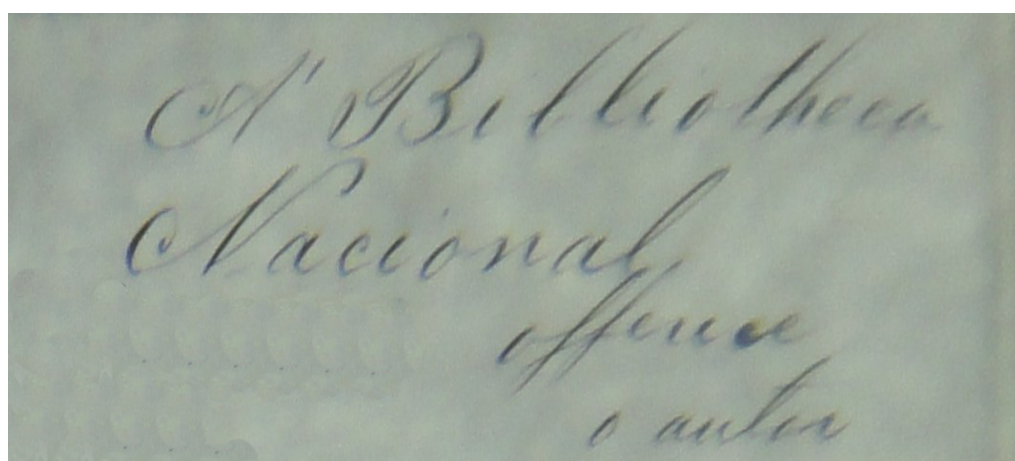 A' Bibliotheca
Nacional
offerece
o autor